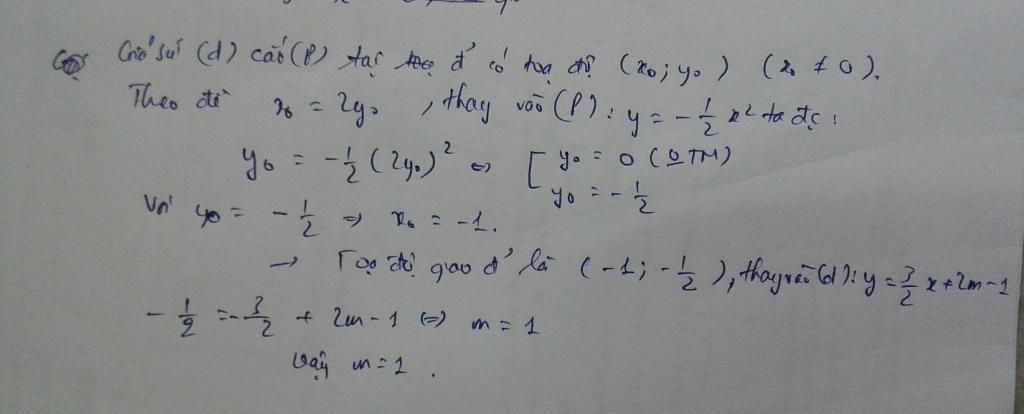 Giả sử (d) cắt (P) tại đ' có toạ độ (x₀; y₀) (x₀ ≠ 0).
Theo đề x₀ = 2y₀, thay vào (P): y = -1/2 x² ta đc:
y₀ = -1/2 (2y₀)² ⇔ [ y₀ = 0 (0 TM)
y₀ = -1/2
Với y₀ = -1/2 ⇒ x₀ = -1.
→ Toạ độ giao đ' là (-1; -1/2), thay vào (d): y = 3/2 x + 2m - 1
-1/2 = -3/2 + 2m - 1 ⇔ m = 1
Vậy m = 1.